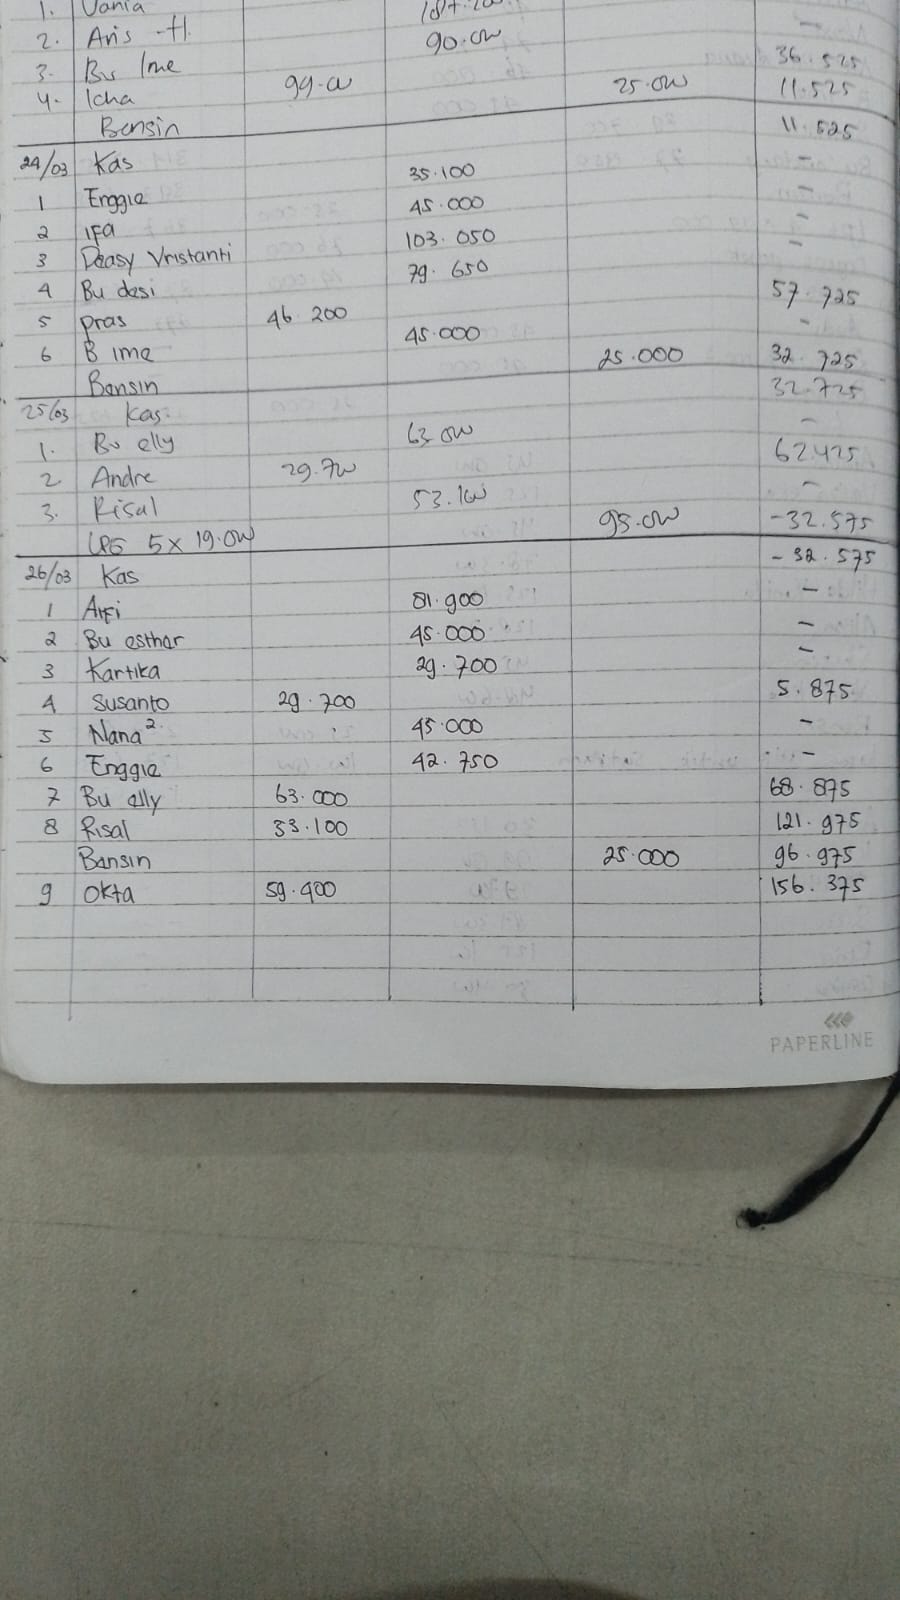 1. Vania
2. Aris - H. 90.000
3. Bu Ime 36.525
4. Icha 99.000 25.000 11.525
Bensin 11.525
24/03 Kas 35.100 -
1 Enggie 45.000 -
2 Ifa 103.050 -
3 Deasy Vristanti 79.650 -
4 Bu desi 57.725
5 pras 46.200 45.000 -
6 B Ime 25.000 32.725
Bensin 32.725
25/03 Kas
1. Bu elly 63.000 -
2 Andre 29.700 62.425
3. Risal 53.100 -
LPG 5 x 19.000 95.000 -32.575
26/03 Kas -32.575
1 Arfi 81.900 -
2 Bu esther 45.000 -
3 Kartika 29.700 -
4 Susanto 29.700 5.875
5 Nana² 45.000 -
6 Enggie 42.750 -
7 Bu elly 63.000 68.875
8 Risal 53.100 121.975
Bensin 25.000 96.975
9 Okta 59.400 156.375
PAPERLINE